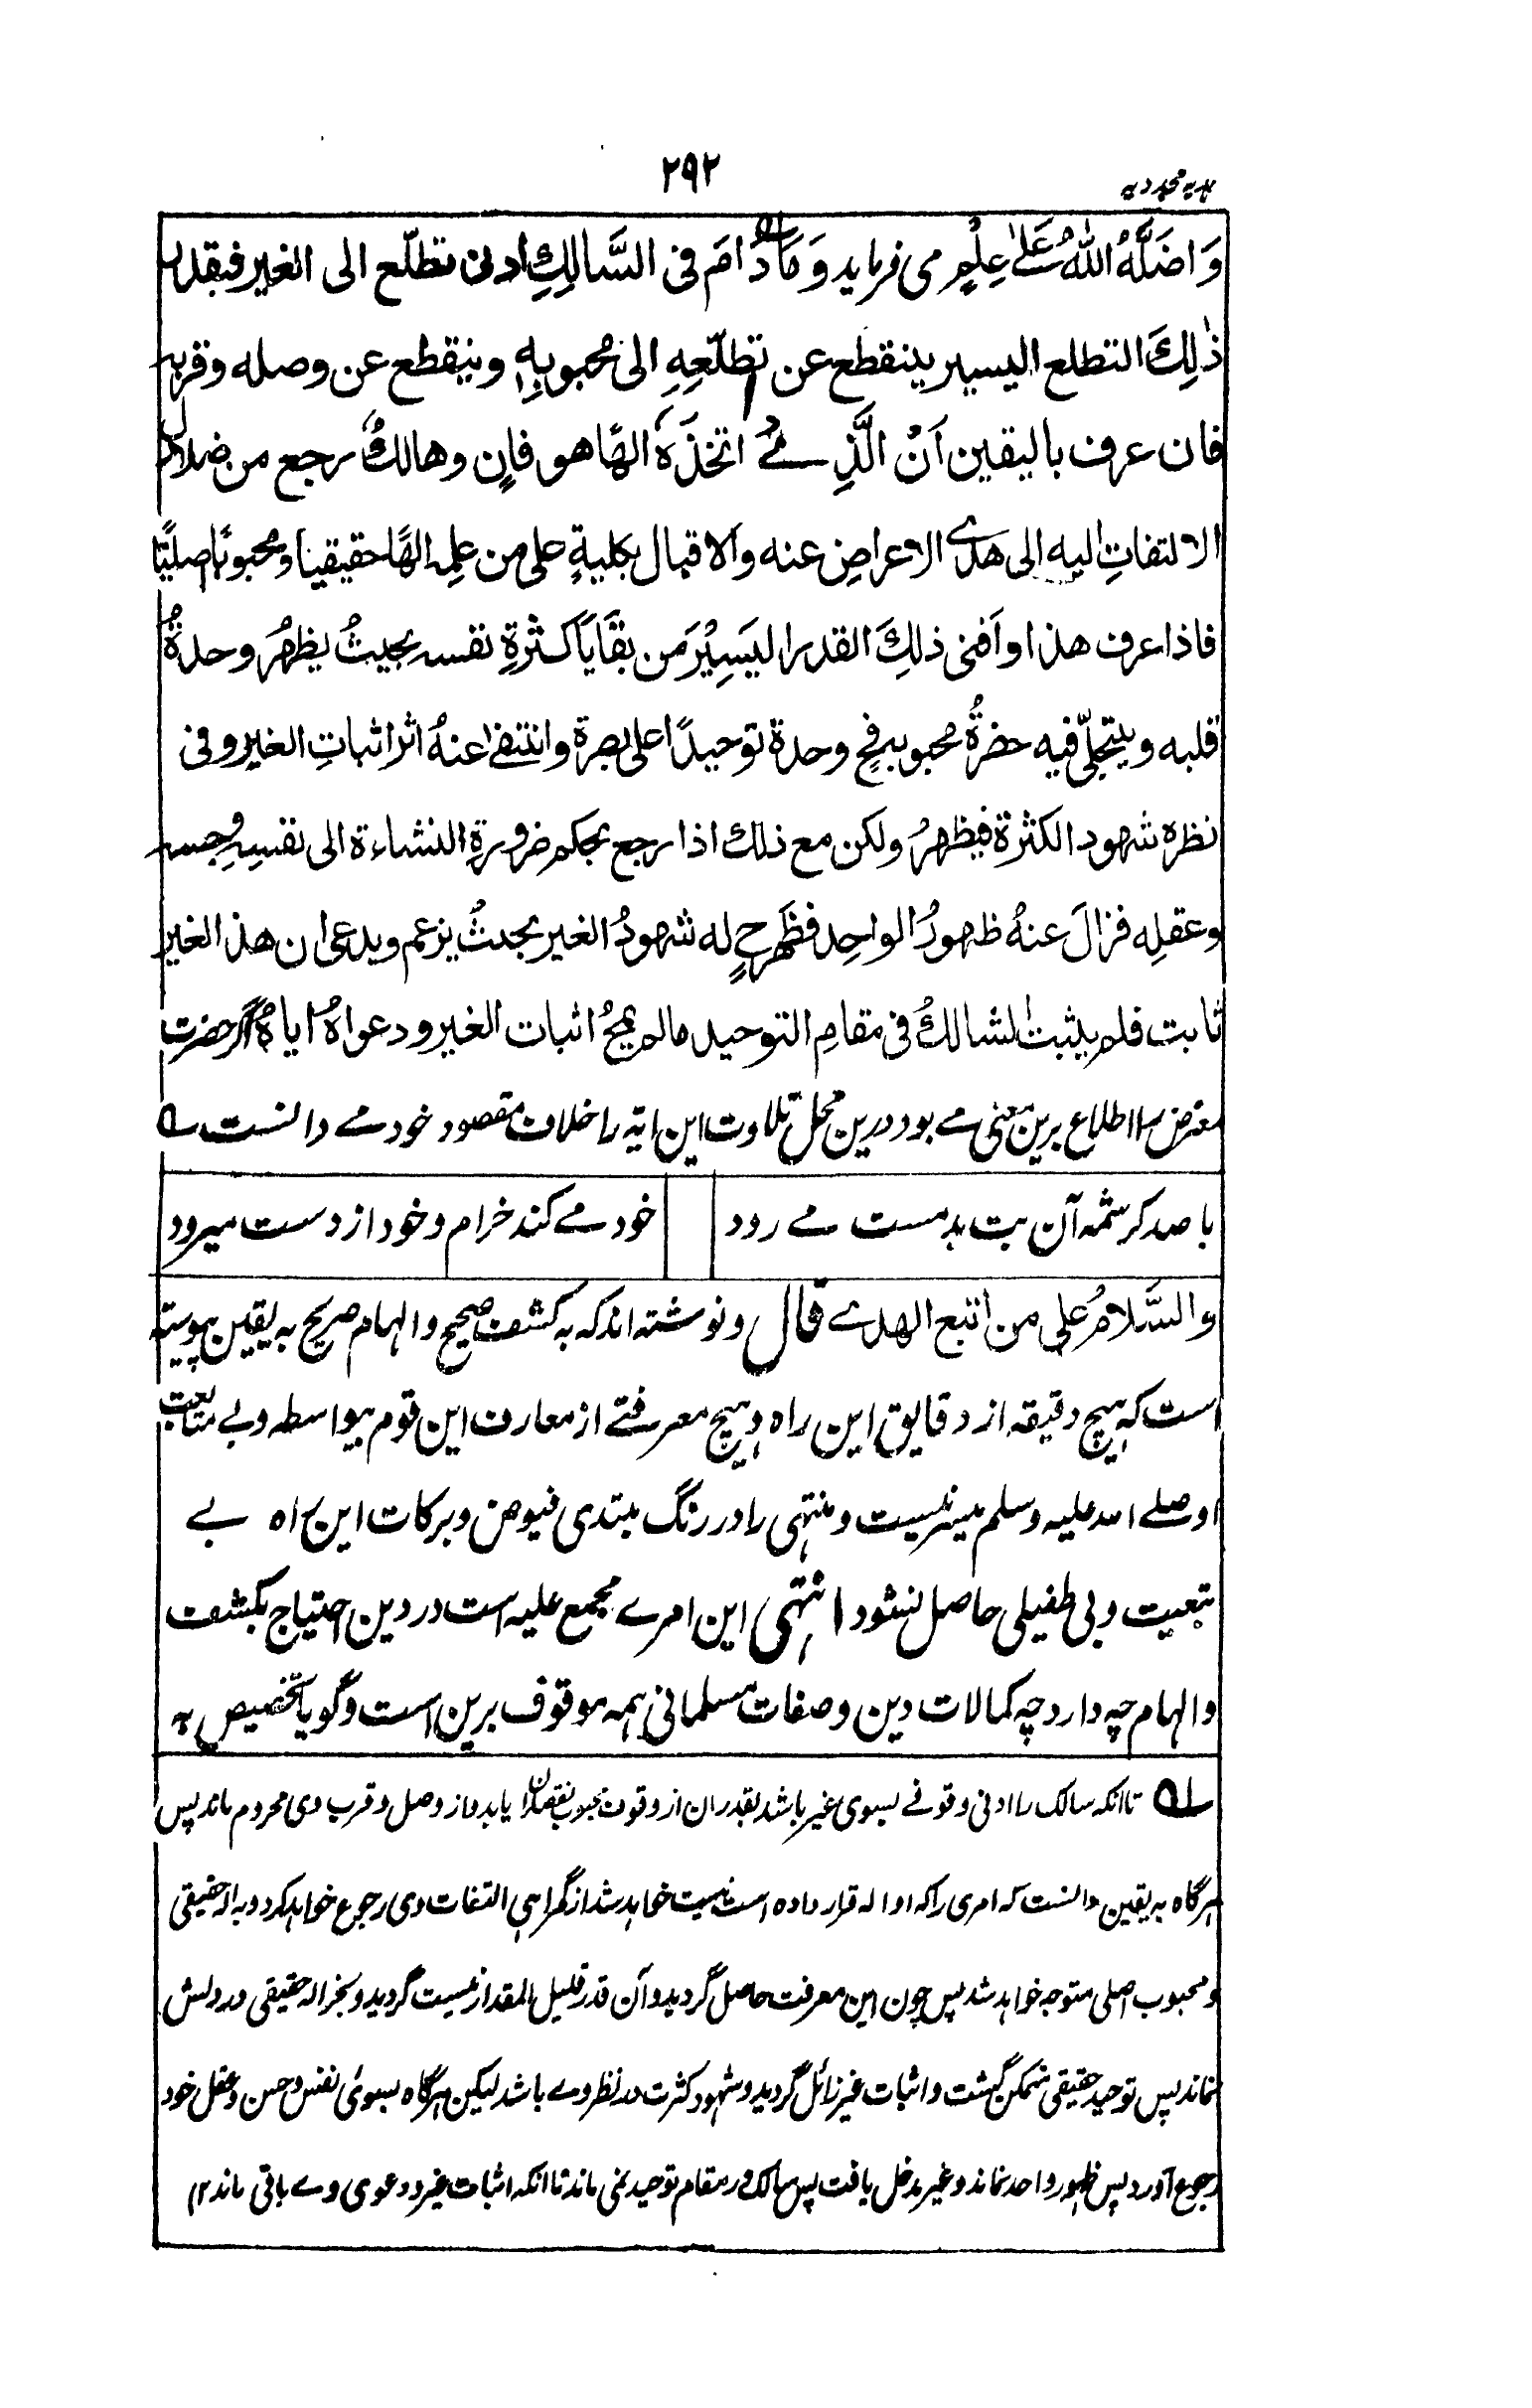 ۲۹۲
ہدیہ مجددیہ
وَاضَلَّهُ اللهُ عَلىٰ عِلْمٍ می فرماید وَمَا دَامَ فی السَّالِكِ ادنی تطلّع الی الغیر فبقدر
ذٰلِكَ التطلع الیسیر ینقطع عن تطلّعِهِ الی محبوبِهٖ وینقطع عن وصله وقربه
فان عرف بالیقین اَنْ الَّذِی اتخذَهٗ الهًا هو فانٍ وهالكٌ رجع من ضلال
الالتفاتِ الیه الی هدی الاعراضِ عنه والاقبال بکلیةٍ علی من علِمه الهًا حقیقیًا ومحبوبًا اصلیًّا
فاذا عرف هذا وافنی ذلِكَ القدر الیَسِیْرَ من بقَایَا کثرةِ نفسه بحیثُ یظهرُ وحدةُ
قلبه ویتجلّی فیه حضرةُ محبوبه فح وحدة توحیدًا علی بصرة وانتفیٰ عنهُ اثر اثباتِ الغیر وفی
نظره شهود الکثرة فیظهرُ ولکن مع ذلك اذا رجع بحکم ضرورةِ النشاءة الی نفسِهِ وحسه
وعقلِه فزالَ عنهُ ظهورُ الواحِد فظَهرحٍ له شهودُ الغیر بحیثُ یزعم ویدعی ان هذا الغیر
ثابت فلم یثبت لسالكُ فی مقامِ التوحید مالم یمحُ اثبات الغیر ودعواهُ ایاهُ اگر حضرت
معترض را اطلاع برین معنی مے بود درین محل تلاوت این ایة را خلاف مقصود خود مے دانست ؎
با صد کرشمه آن بت بدمست مے رود خود مے کند خرام و خود از دست میرود
والسَّلامُ علی من اتبع الهدے قال ونوشته اند که به کشف صحیح والهام صریح به یقین پیوسته
است که هیچ دقیقه از دقایق این راه و هیچ معرفتے از معارف این قوم بیواسطه وبے متابعت
او صلے الله علیه وسلم میسر نیست ومنتهی را در رنگ مبتدی فیوض وبرکات این راه بے
تبعیت وبی طفیلی حاصل نشود انتهی این امرے مجمع علیه است در دین احتیاج بکشف
والهام چه دارد چه کمالات دین وصفات مسلمانی همه موقوف برین است وگویا تخصیص به
؎ تا انکه سالک را ادنی وقوفے بسوی غیر باشد بقدر ان از وقوف محبوب نقصان یابد واز وصل وقرب وی محروم ماند پس
هرگاه به یقین دانست که امری را که او اله قرار داده است نیست خواهد شد از گمراهی التفات وی رجوع خواهد کرد و به اله حقیقی
ومحبوب اصلی متوجه خواهد شد پس چون این معرفت حاصل گردید وآن قدر قلیل المقدار نیست گردید وبجز اله حقیقی در دلش
نماند پس توحید حقیقی متمکن گشت واثبات غیر زائل گردید وشهود کثرت در نظر وے باشد لیکن هرگاه بسوی نفس وحس وعقل خود
رجوع آورد پس ظهور واحد نماند وغیر مدخل یافت پس سالک در مقام توحید نمی ماند تا انکه اثبات غیر ودعوی وے باقی ماند ۱۲